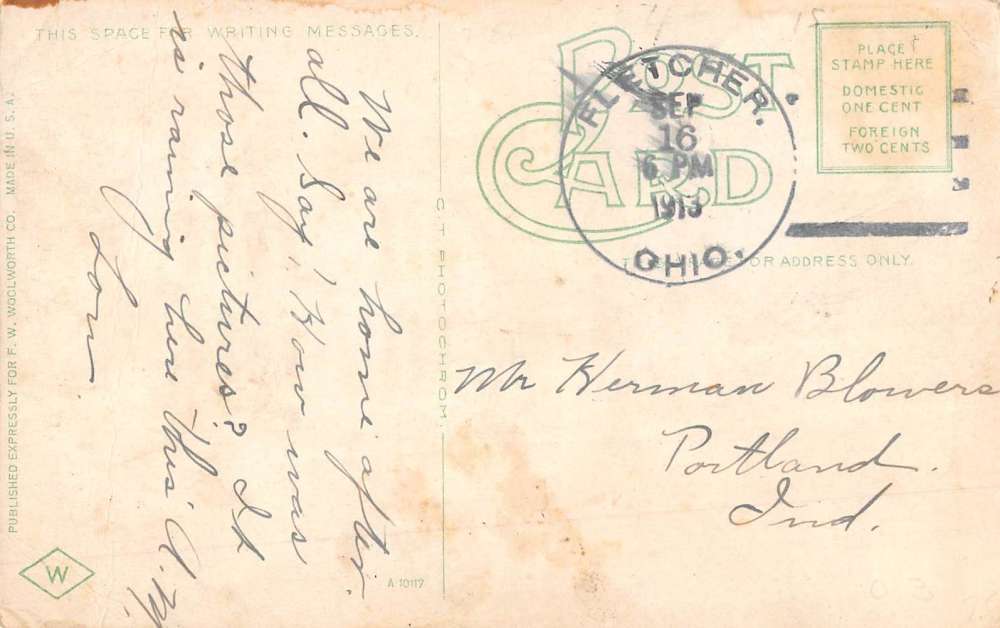 THIS SPACE FOR WRITING MESSAGES.
We are home after
all. Say! How was
those pictures? It
is raining here this A.M.
PUBLISHED EXPRESSLY FOR F. W. WOOLWORTH CO. MADE IN U. S. A.
W
C. T. PHOTOCHROM.
A 10117
POST
CARD
FLETCHER.
SEP
16
6 PM
1913
OHIO.
PLACE
STAMP HERE
DOMESTIC
ONE CENT
FOREIGN
TWO CENTS
FOR ADDRESS ONLY.
Mr Herman Blowers
Portland.
Ind.